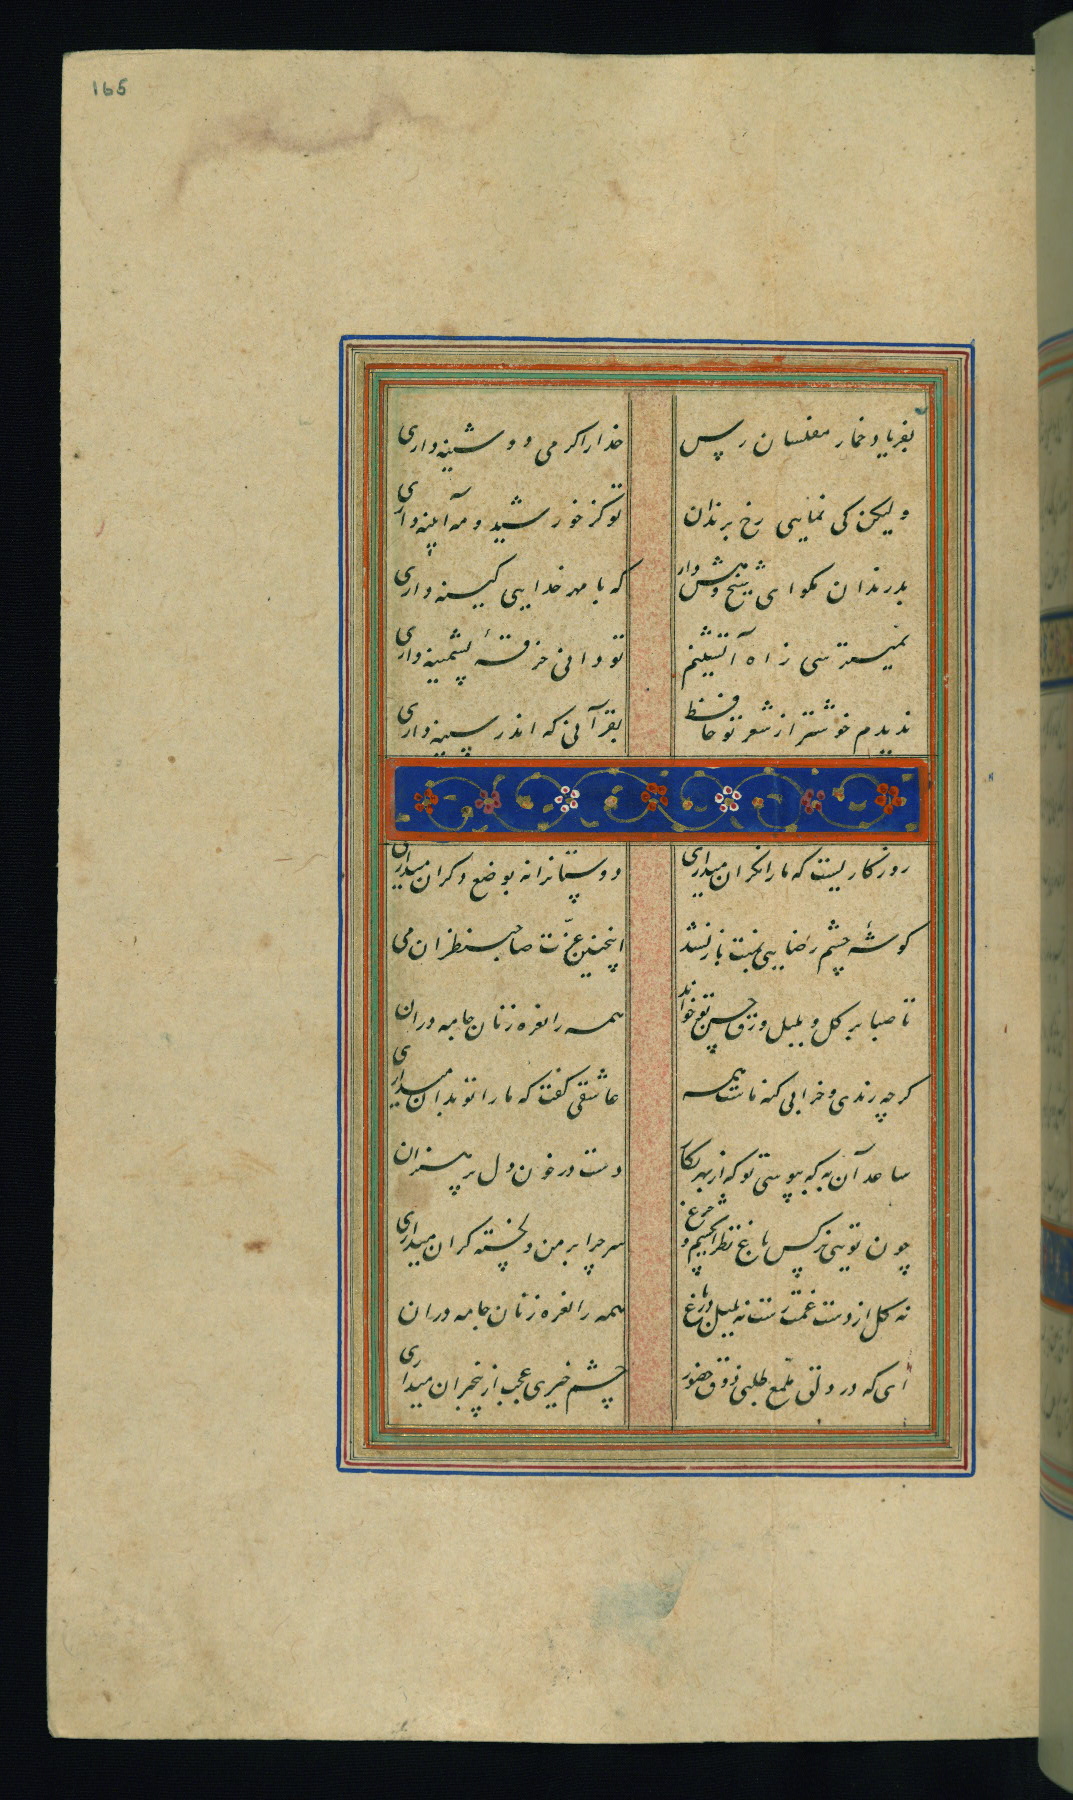 165
بفریاد خمار مفلسان رس خدارا گر می دوشینه داری
ولیکن کی نمایی رخ برندان تو کز خورشید و مه آیینه داری
بد رندان مگو ای شیخ و هش دار که با مهر خدایی کینه داری
نمیترسی ز آه آتشینم تو دانی خرقهٔ پشمینه داری
ندیدم خوشتر از شعر تو حافظ بقرآنی که اندر سینه داری
روزگاریست که ما را نگران میداری دوستانرا نه بوضع دگران میداری
گوشهٔ چشم رضایی بمنت باز نشد اینچنین عزّت صاحب نظران می
تا صبا بر گل و بلبل ورق حسن تو خواند همه را نعره زنان جامه دران
گرچه رندی و خرابی گنه ماست همه عاشقی گفت که ما را تو بدان میداری
ساعد آن به که بپوشی تو که از بهر نگار دست در خون دل پر هنران
چون تویی نرگس باغ نظر ای چشم و چراغ سر چرا بر من دلخسته گران میداری
نه گل از دست غمت رست نه بلبل در باغ همه را نعره زنان جامه دران
ای که در دلق ملمّع طلبی ذوق حضور چشم خیری عجب از بیخبران میداری